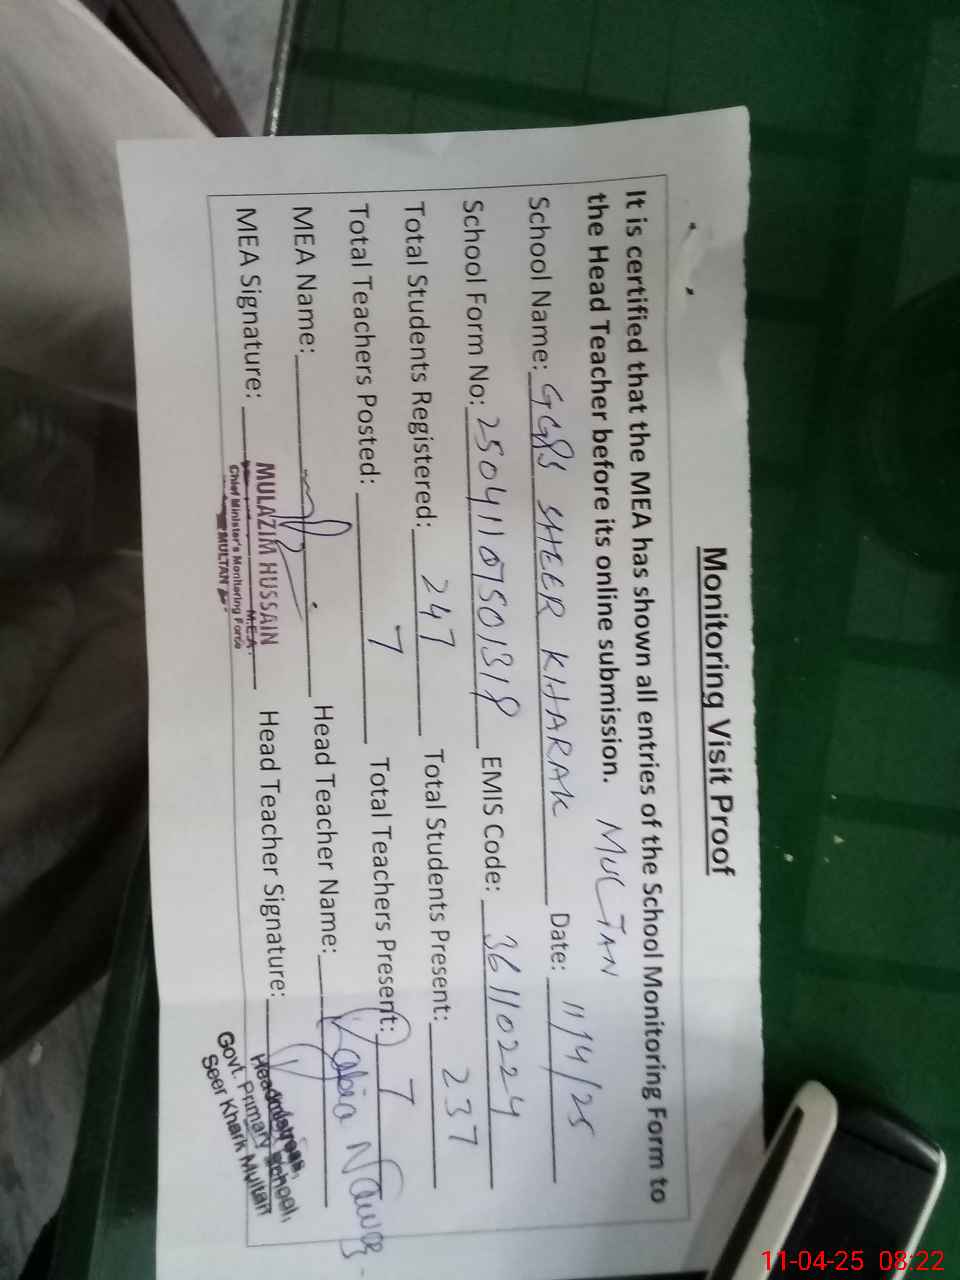 Monitoring Visit Proof
It is certified that the MEA has shown all entries of the School Monitoring Form to
the Head Teacher before its online submission. MULTAN
School Name: GGPS SHEER KHARAK Date: 11/4/25
School Form No: 2504110750131 EMIS Code: 36110224
Total Students Registered: 247 Total Students Present: 237
Total Teachers Posted: 7 Total Teachers Present: 7
MEA Name: Head Teacher Name: Rabia Nawaz
MEA Signature: Head Teacher Signature:
MULAZIM HUSSAIN
M.E.A.
Chief Minister's Monitoring Force
MULTAN
Headmistress,
Govt. Primary School,
Seer Khark Multan
11-04-25 08:22